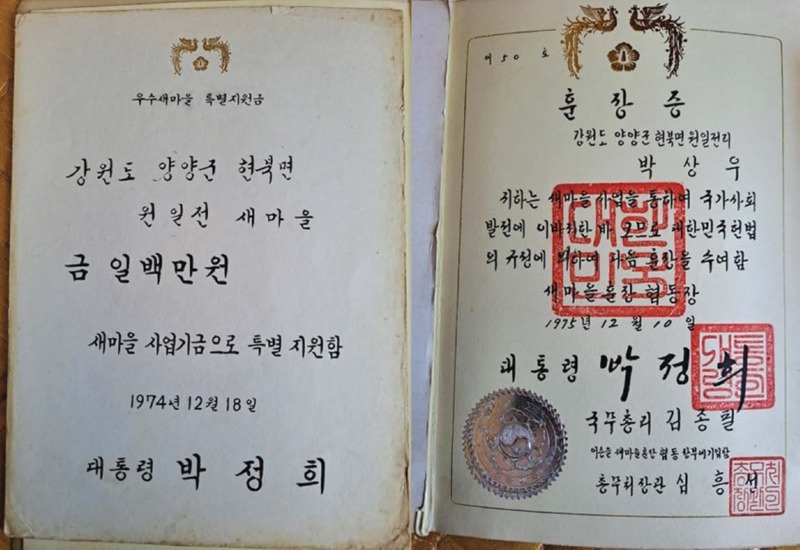 우수새마을 특별지원금
강원도 양양군 현북면
원일전 새마을
금 일백만원
새마을 사업기금으로 특별 지원함
1974년 12월 18일
대통령 박정희
제 50 호
훈장증
강원도 양양군 현북면 원일전리
박상우
귀하는 새마을 사업을 통하여 국가사회
발전에 이바지한 바 크므로 대한민국헌법
의 규정에 의하여 다음 훈장을 수여함
새마을훈장 협동장
1975년 12월 10일
대통령 박정희
국무총리 김종필
이 새마을훈장 협동장부에 기입함
총무처장관 심흥선